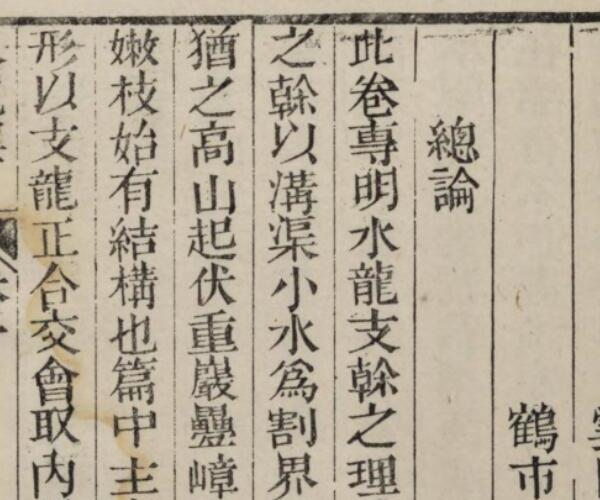 鶴市
總論
此卷專明水龍支幹之理
之幹以溝渠小水爲割界
猶之高山起伏重巖疊嶂
嫩枝始有結構也篇中主
形以支龍正合交會取內